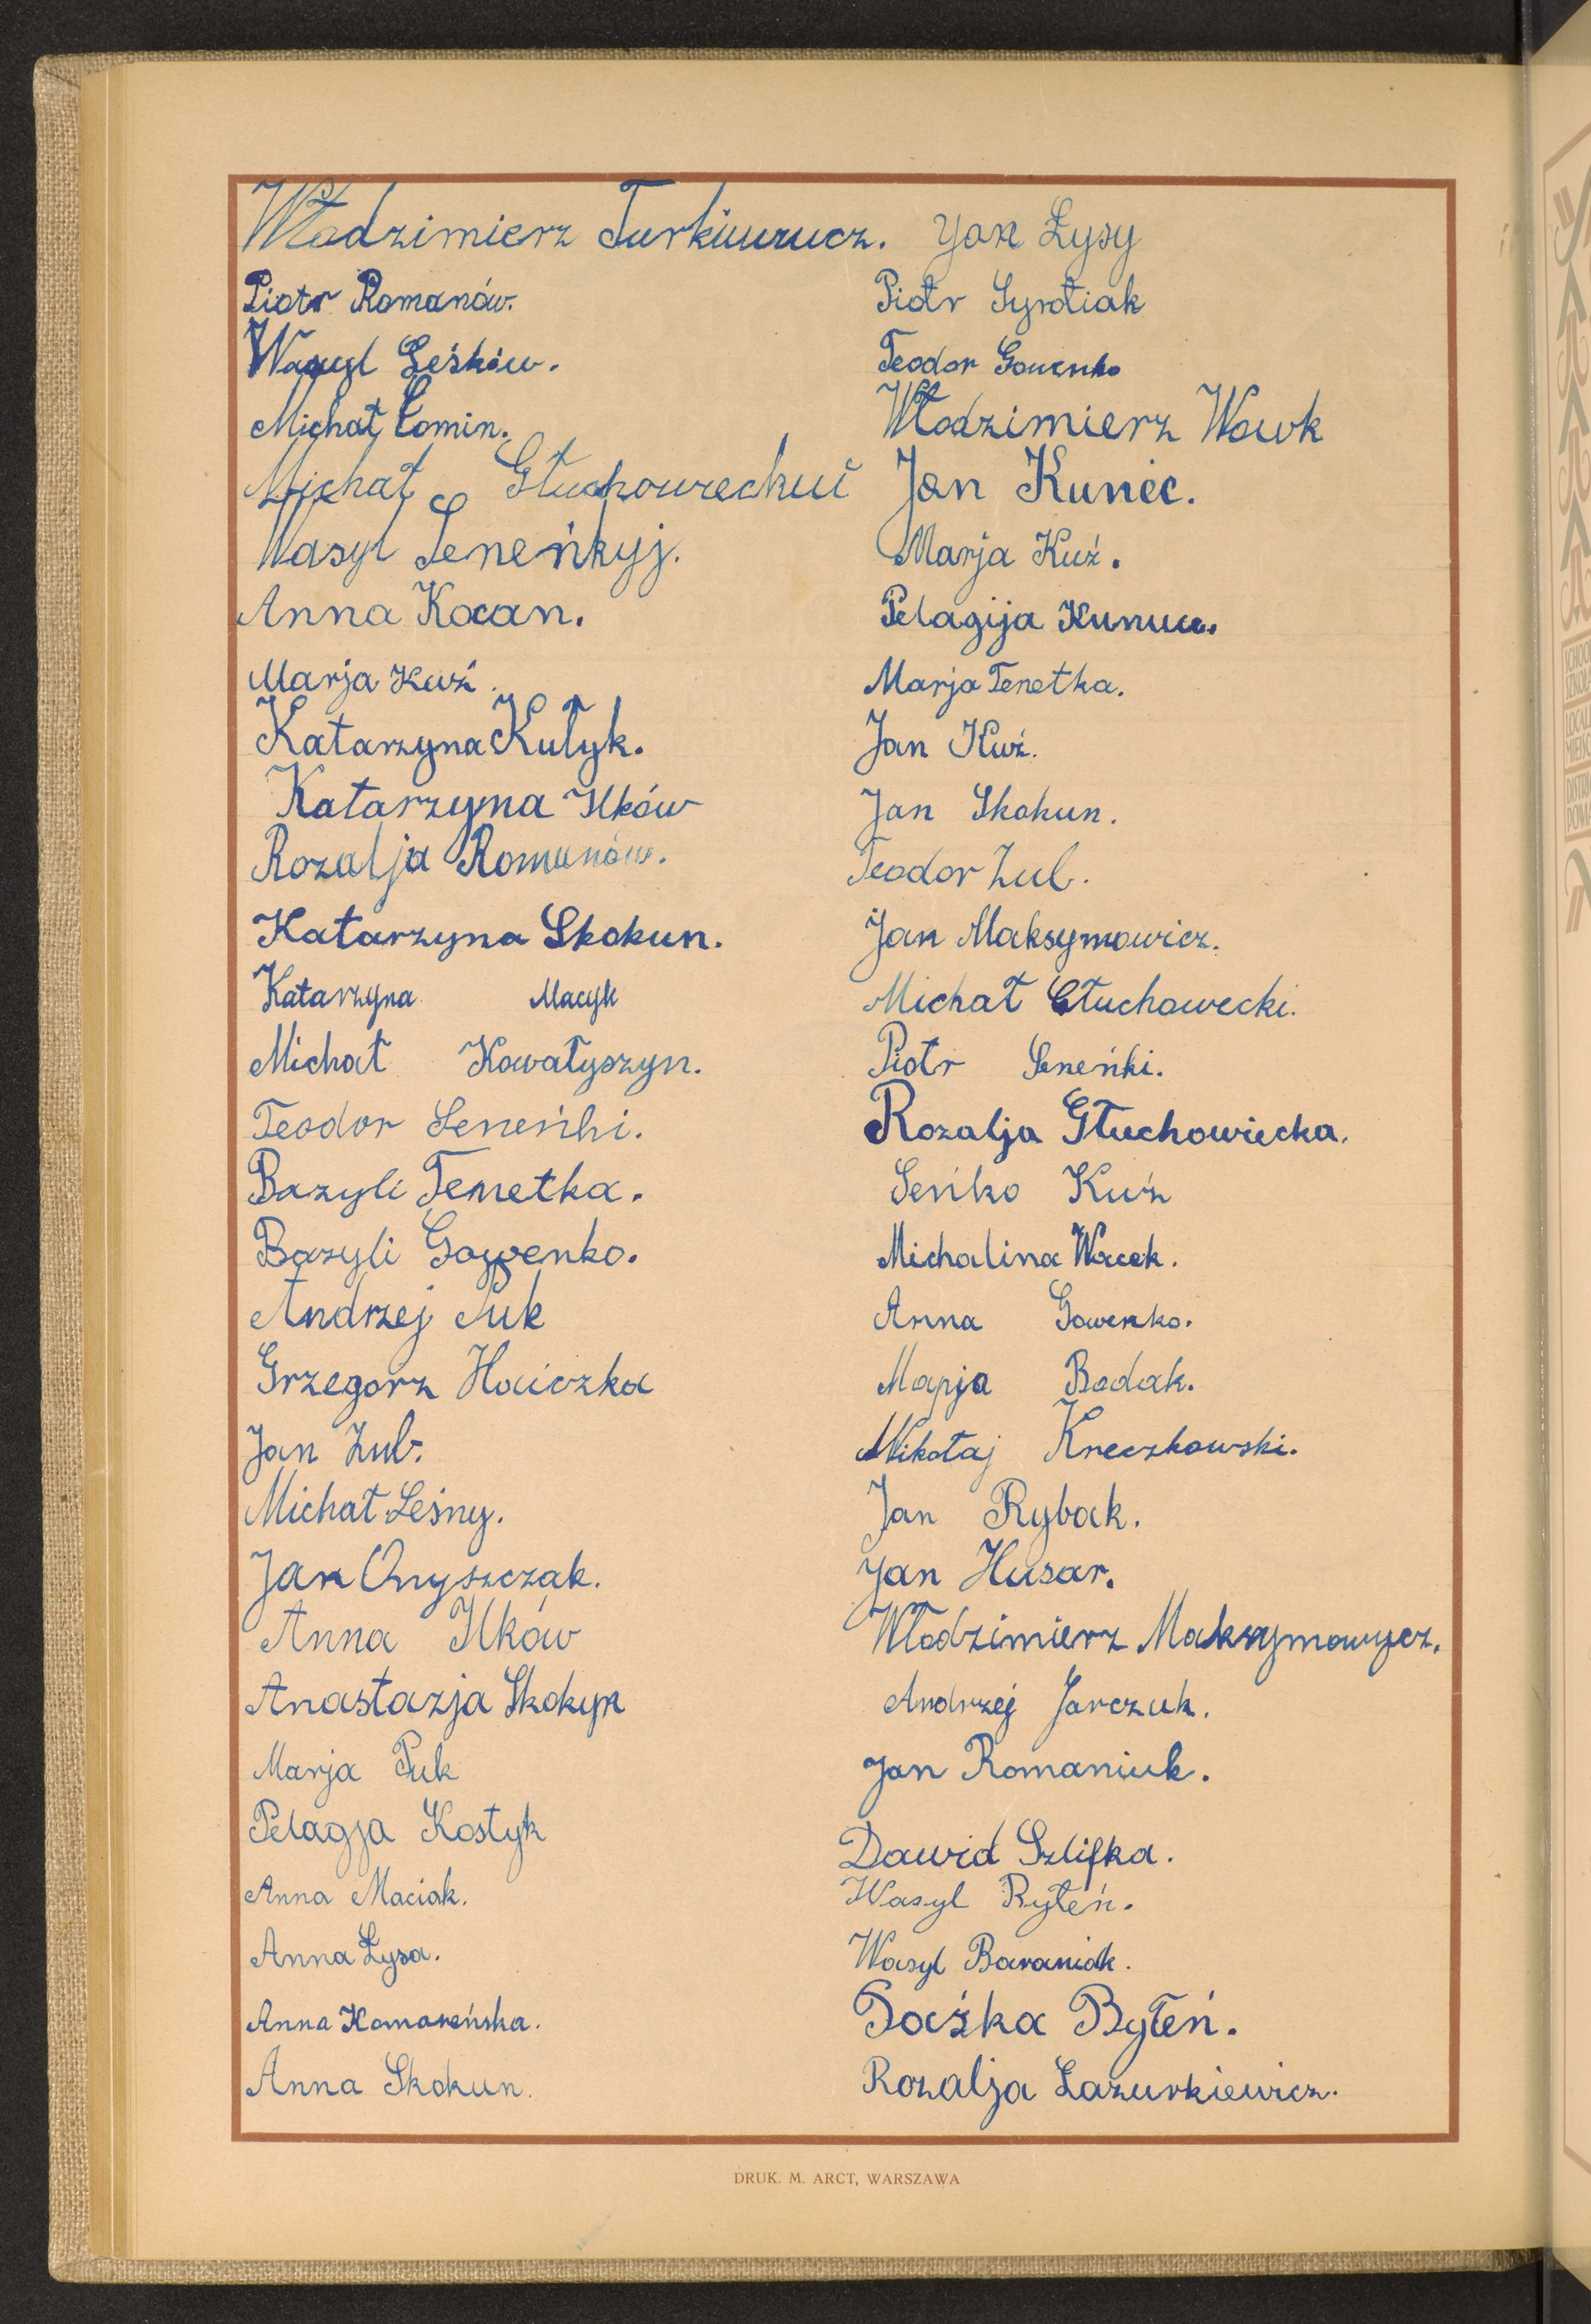 Włodzimierz Turkiewicz.
Piotr Romanów.
Wasyl Leśkiw.
Michał Łomin.
Michał Głuchoweckui
Wasyl Seneńkyj.
Anna Kocan.
Marja Kuź.
Katarzyna Kułyk.
Katarzyna Ilków
Rozalja Romunów.
Katarzyna Skokun.
Katarzyna Macyk
Michał Kowałyszyn.
Teodor Seneńki.
Bazyli Temetka.
Bazyli Gowenko.
Andrzej Puk
Grzegorz Haiczka
Jan Zub.
Michał Leśny.
Jan Onyszczak.
Anna Ilków
Anastazja Skokyn
Marja Puk
Pelagja Kostyk
Anna Maciak.
Anna Łysa.
Anna Komareńska.
Anna Skokun.
Jan Łysy
Piotr Syrotiak
Teodor Gowenko
Włodzimierz Wowk
Jan Kuniec.
Marja Kuź.
Pelagija
Marja Tenetka.
Jan Kuź.
Jan Skokun.
Teodor Zub.
Jan Maksymowicz.
Michał Głuchowecki.
Piotr Seneńki.
Rozalja Głuchowiecka.
Seńko Kuź
Michalina Wacek.
Anna Gowenko.
Mapja Badak.
Mikołaj Kreczkowski.
Jan Rybak.
Jan Husar.
Włodzimierz Maksymowycz.
Andrzej Jarczuk.
Jan Romaniuk.
Dawid Szlifka.
Wasyl Ryteń.
Wasyl Baraniak.
Byteń.
Rozalja Łazurkiewicz.
DRUK. M. ARCT, WARSZAWA